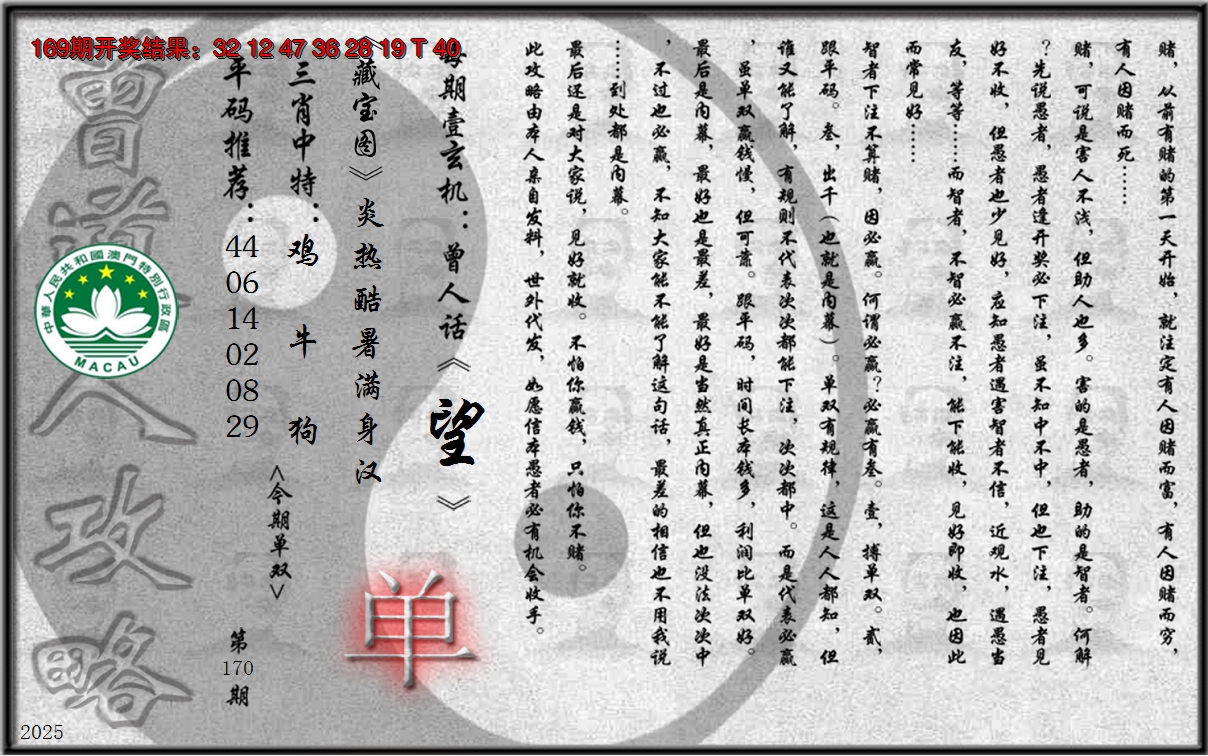 169期开奖结果：32 12 47 36 28 19 T 40
赌，从前有赌的第一天开始，就注定有人因赌而富，有人因赌而穷，
有人因赌而死……
赌，可说是害人不浅，但助人也多。害的是愚者，助的是智者。何解
？先说愚者，愚者逢开奖必下注，虽不知中不中，但也下注，愚者见
好不收，但愚者也少见好，应知愚者遇害智者不信，近观水，遇愚当
友，等等……而智者，不智必赢不注，能下能收，见好即收，也因此
而常见好……
智者下注不算赌，因必赢。何谓必赢？必赢有叁。壹，搏单双。贰，
跟平码。叁，出千（也就是内幕）。单双有规律，这是人人都知，但
谁又能了解，有规则不代表次次都能下注，次次都中。而是代表必赢
，虽单双赢钱慢，但可靠。跟平码，时间长本钱多，利润比单双好。
最后是内幕，最好也是最差，最好是当然真正内幕，但也没法次次中
，不过也必赢，不知大家能不能了解这句话，最差的相信也不用我说
……到处都是内幕。
最后还是对大家说，见好就收。不怕你赢钱，只怕你不赌。
此攻略由本人亲自发料，世外代发，如愿信本愚者必有机会收手。
每期壹玄机：曾人话《望》
《藏宝图》炎热酷暑满身汉
三肖中特：鸡 牛 狗
平码推荐：44 06 14 02 08 29
<今期单双>
单
第170期
曾道人攻略
中華人民共和國澳門特別行政區
MACAU
2025